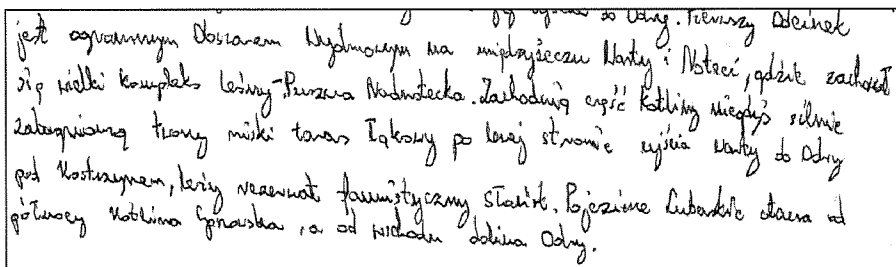 do Odry. Pierwszy Odcinek
jest ogromnym Obszarem Wydmowym na międzyrzeczu Warty i Noteci, gdzie zachował
się wielki kompleks leśny-Puszcza Nadnotecka. Zachodnią część Kotliny niegdyś silnie
zabagnioną tworzy niski taras łąkowy po lewej stronie ujścia Warty do Odry
pod Kostrzynem, leży rezerwat faunistyczny Słońsk. Pojezierze Lubuskie otacza od
północy Kotlina , a od wschodu dolina Odry.